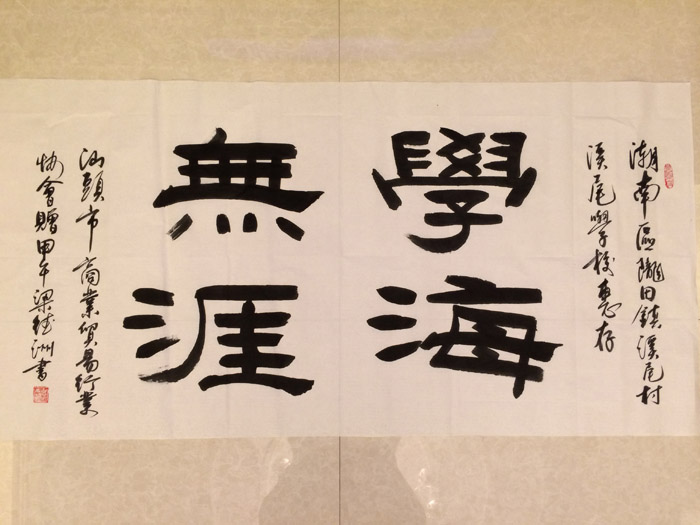 潮南區隴田鎮溪尾村
溪尾學校惠存
學海
無涯
汕頭市商業貿易行業
協會贈甲午梁德洲書